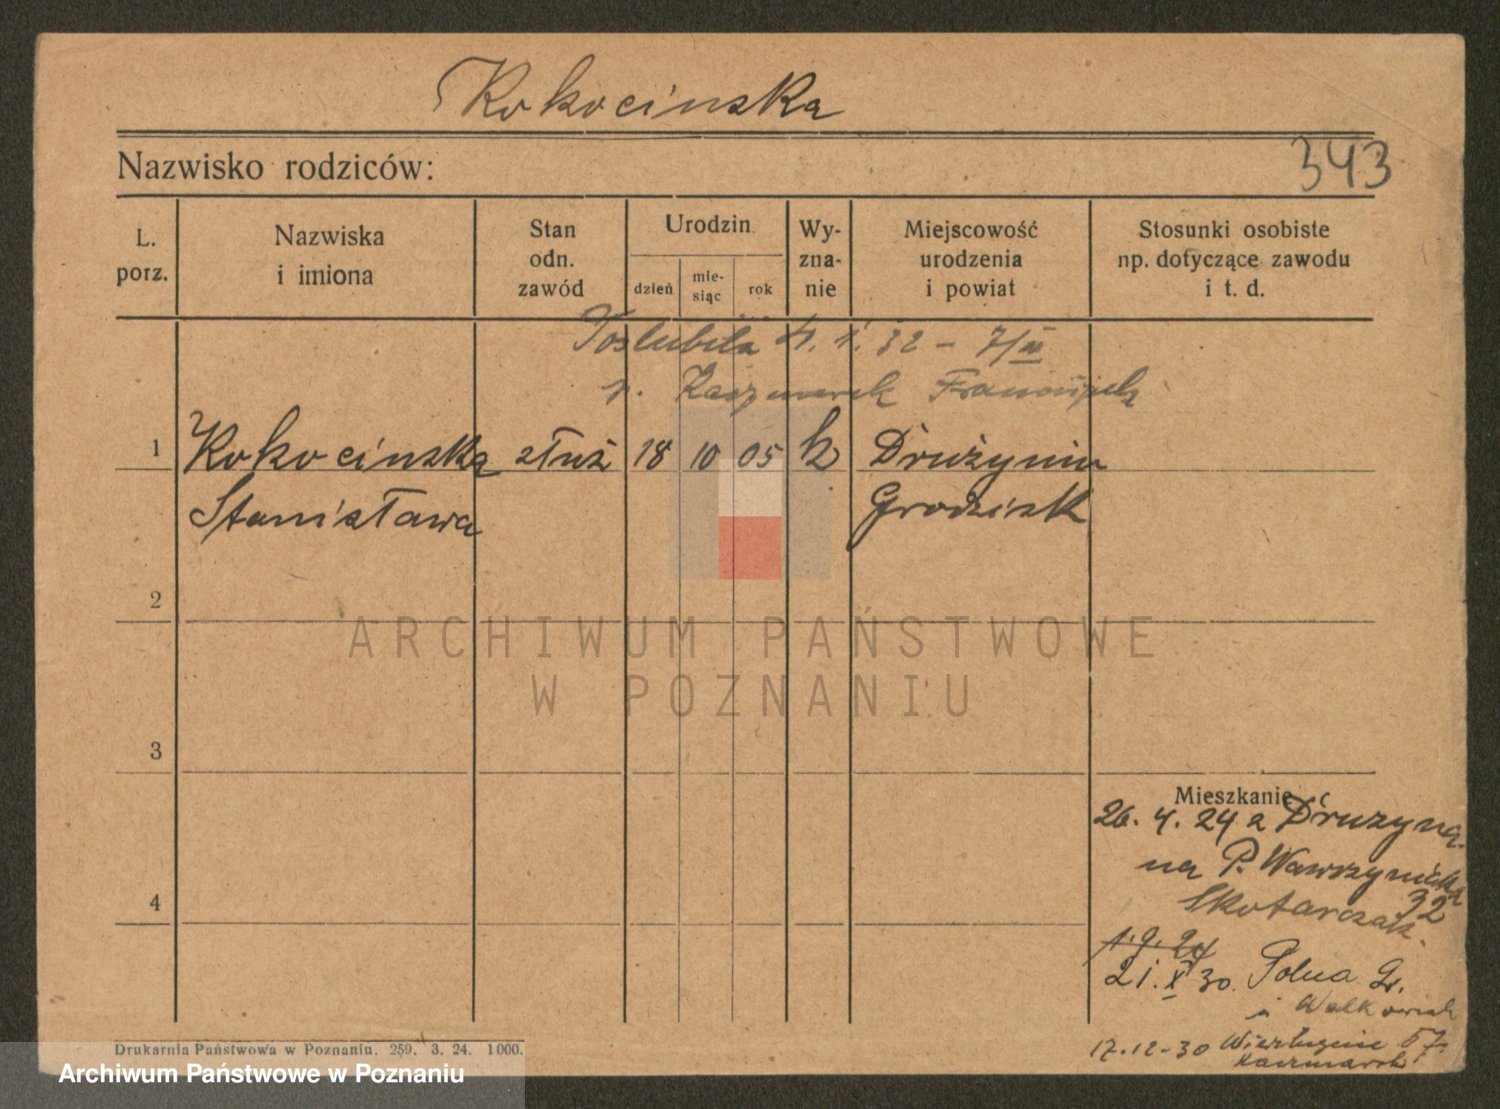 Kokocinska
Nazwisko rodziców:
343
L. porz.
Nazwiska i imiona
Stan odn. zawód
Urodzin
dzień
mie-siąc
rok
Wy-zna-nie
Miejscowość urodzenia i powiat
Stosunki osobiste np. dotyczące zawodu i t. d.
Poslubila 32 - 7/
p. Kaczmarek
1 Kokocinska służ 18 10 05 k Drużynia
Stanisława Grodzisk
2
ARCHIWUM PAŃSTWOWE
W POZNANIU
3
Mieszkanie
26. 4. 24 z Drużyną
na P. Wawrzyniaka
4
32
Skotarczak
1. 9. 24
21. X 30. Polna
Walkowiak
17.12-30 57
Kaczmarek
Drukarnia Państwowa w Poznaniu. 259. 3. 24. 1000.
Archiwum Państwowe w Poznaniu